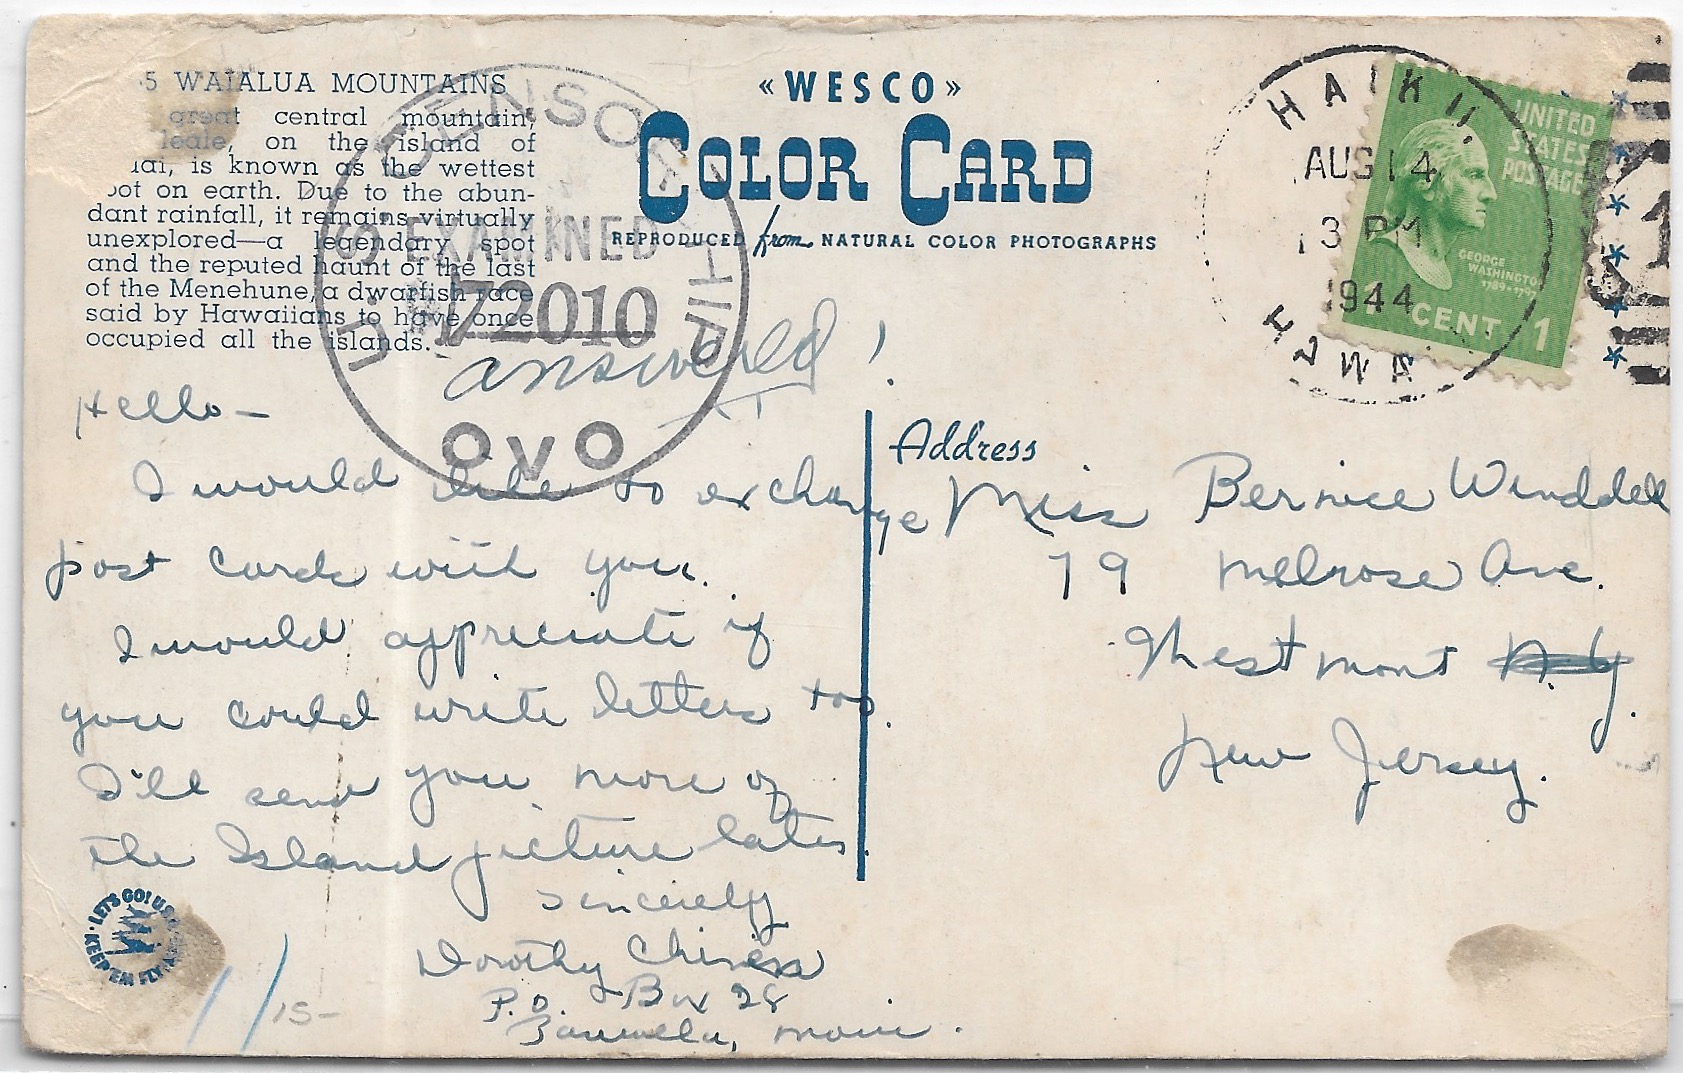 5 WAIALUA MOUNTAINS
great central mountain,
leale, on the island of
uai, is known as the wettest
pot on earth. Due to the abun-
dant rainfall, it remains virtually
unexplored—a legendary spot
and the reputed haunt of the last
of the Menehune, a dwarfish race
said by Hawaiians to have once
occupied all the islands.
«WESCO»
COLOR CARD
REPRODUCED from NATURAL COLOR PHOTOGRAPHS
U.S. CENSORSHIP
EXAMINED
72010
OVO
HAIKU.
AUG 14
3 PM
1944
HAWA
UNITED
STATES
POSTAGE
GEORGE
WASHINGTON
1789-1797
1 CENT 1
answered!
Hello—
I would like to exchange
post cards with you.
I would appreciate if
you could write letters too.
I'll send you more of
the Island picture later.
Sincerely
Dorothy
P.O. Box 28
Pauwela, Maui.
Address
Miss Bernice Winddell
79 Melrose Ave.
Westmont N.Y.
New Jersey.
LET'S GO! U.S.A.
KEEP 'EM FLYING
15-